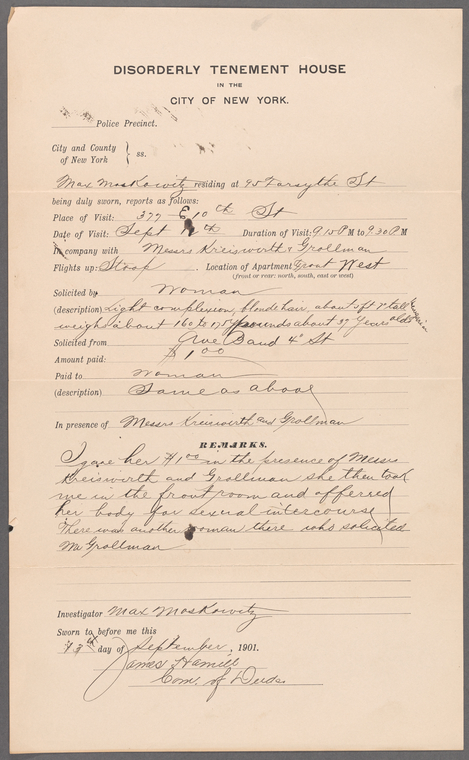 DISORDERLY TENEMENT HOUSE
IN THE
CITY OF NEW YORK.
Police Precinct.
City and County
of New York } ss.
Max Moskowitz residing at 95 Forsythe St
being duly sworn, reports as follows:
Place of Visit: 377 E 10th St
Date of Visit: Sept th Duration of Visit: 9 15 P M to 9 30 P M
In company with Messrs Kreisworth & Grollman
Flights up: Stoop Location of Apartment Front West
(front or rear: north, south, east or west)
Solicited by Woman
(description) Light complexion, blonde hair, about 5 ft tall
weigh about 160 to 175 pounds about 37 years old
Solicited from Ave B and 4" St
Amount paid: $1.00
Paid to Woman
(description) Same as above
In presence of Messrs Kreisworth and Grollman
REMARKS.
I gave her $1.00 in the presence of Messrs
Kreisworth and Grollman she then took
me in the front room and offerred
her body for sexual intercourse
There was another woman there who solicited
Mr Grollman
Investigator Max Moskowitz
Sworn to before me this
day of September, 1901.
James Hamill
Com. of Deeds